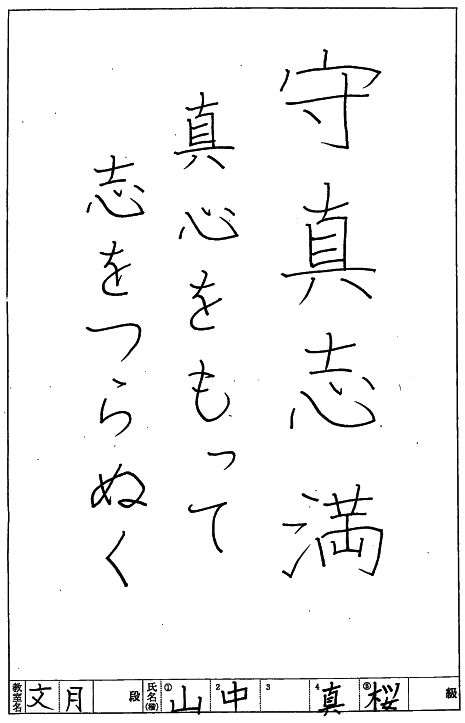 守真志満
真心をもって
志をつらぬく
教室名 文月 段 氏名(楷) ① 山 2 中 3 4 真 ⑤ 桜 級